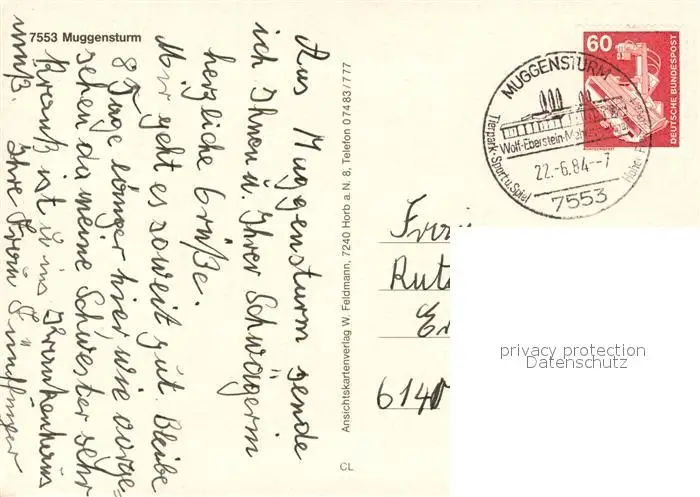 7553 Muggensturm
Aus Muggensturm sende
ich Ihnen u. Ihrer Schwägerin
herzliche Grüße.
Mir geht es soweit gut. Bleibe
8 Tage länger hier wie vorge-
sehen da meine Schwester sehr
krank ist u ins Krankenhaus
muß. Ihre Frau
Ansichtskartenverlag W. Feldmann, 7240 Horb a. N. 8, Telefon 07483/777
CL
60
DEUTSCHE BUNDESPOST
MUGGENSTURM
Wolf-Eberstein-
Tierpark-Sport u. Spiel
22.-6.84--7
7553
Frau
6140
privacy protection
Datenschutz